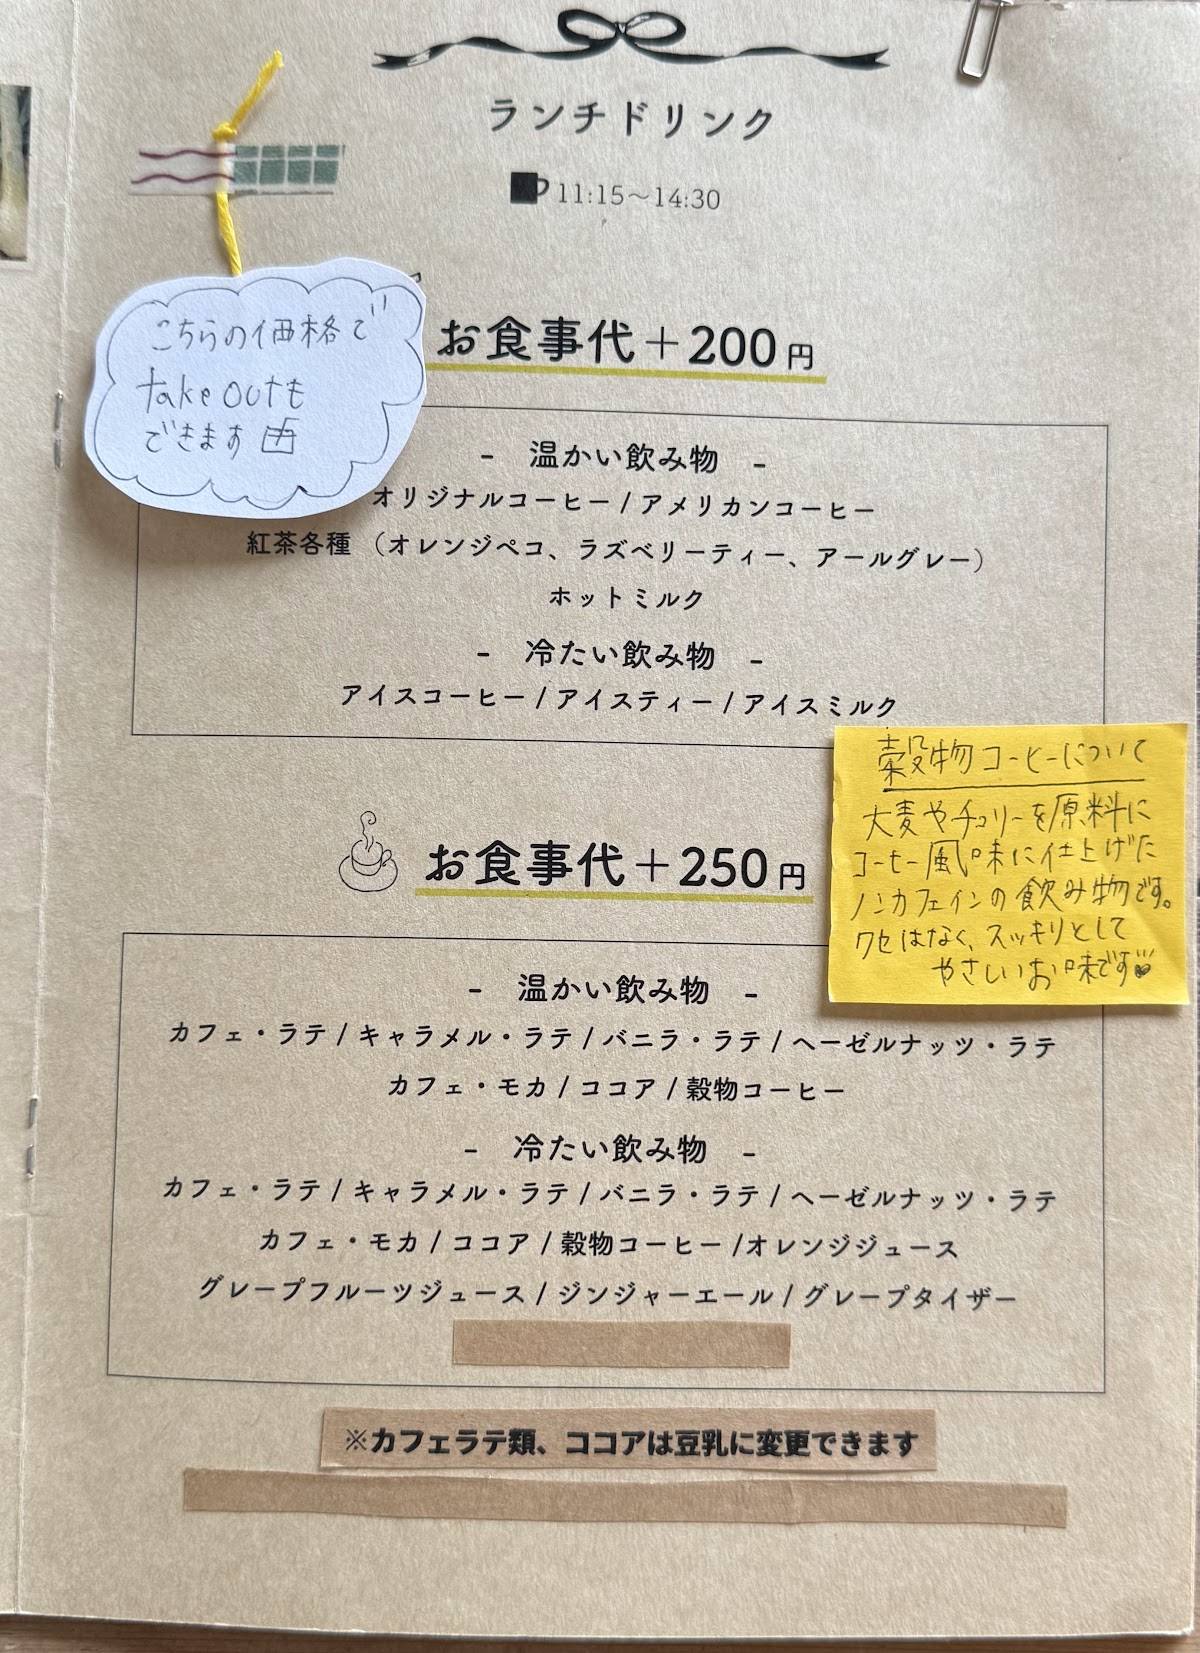 ランチドリンク
11:15〜14:30
こちらの価格で
take outも
できます
お食事代＋200円
- 温かい飲み物 -
オリジナルコーヒー / アメリカンコーヒー
紅茶各種 （オレンジペコ、ラズベリーティー、アールグレー）
ホットミルク
- 冷たい飲み物 -
アイスコーヒー / アイスティー / アイスミルク
穀物コーヒーについて
大麦やチコリーを原料に
コーヒー風味に仕上げた
ノンカフェインの飲み物です。
クセはなく、スッキリとして
やさしいお味です
お食事代＋250円
- 温かい飲み物 -
カフェ・ラテ / キャラメル・ラテ / バニラ・ラテ / ヘーゼルナッツ・ラテ
カフェ・モカ / ココア / 穀物コーヒー
- 冷たい飲み物 -
カフェ・ラテ / キャラメル・ラテ / バニラ・ラテ / ヘーゼルナッツ・ラテ
カフェ・モカ / ココア / 穀物コーヒー /オレンジジュース
グレープフルーツジュース / ジンジャーエール / グレープタイザー
※カフェラテ類、ココアは豆乳に変更できます